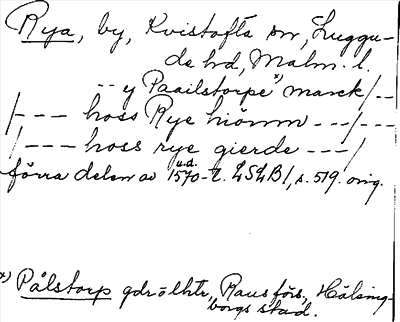 Rya, by, Kvistofta sn, Luggu-
de hd, Malm. l.
-- y Paailstorpe x) marck /--
/--- hoss Rye hiömm ---/---
/--- hoss rye gierde ---/
förra delen av u.d. 1570-t. LSLB1, s. 519. orig.
x) Pålstorp gdr o lhtr, Raus förs., Hälsing-
borgs stad.